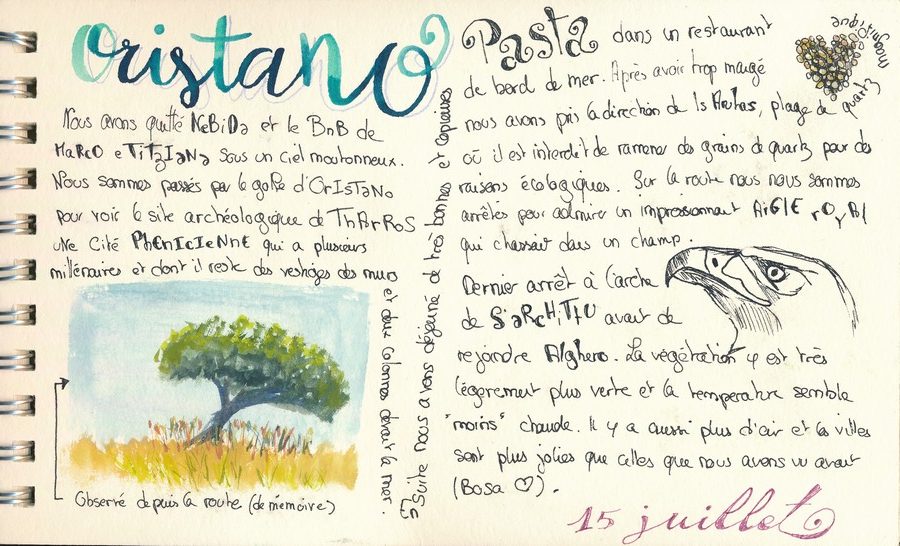 Oristano
Nous avons quitté NeBiDa et le BnB de
MaRcO e TiTzIaNa sous un ciel moutonneux.
Nous sommes passés par le golfe d'OrIsTaNo
pour voir le site archéologique de ThArROS
uNe Cité PhEnIcIeNnE qui a plusieurs
millénaires et dont il reste des vestiges des murs
et deux colonnes devant la mer.
Observé depuis la route (de mémoire)
Suite nous avons déjeuné de très bonnes et copieuses
Pasta dans un restaurant
de bord de mer. Après avoir trop mangé
nous avons pris la direction de Is Arutas, plage de quartz
où il est interdit de ramener des grains de quartz pour des
raisons écologiques. Sur la route nous nous sommes
arrêtés pour admirer un impressionnant AiGlE rOyAl
qui chassait dans un champ.
Dernier arrêt à l'arche
de S'aRcHiTtU avant de
rejoindre Alghero. La végétation y est très
légèrement plus verte et la temperature semble
"moins" chaude. Il y a aussi plus d'air et les villes
sont plus jolies que celles que nous avons vu avant
(Bosa ♡).
15 juillet